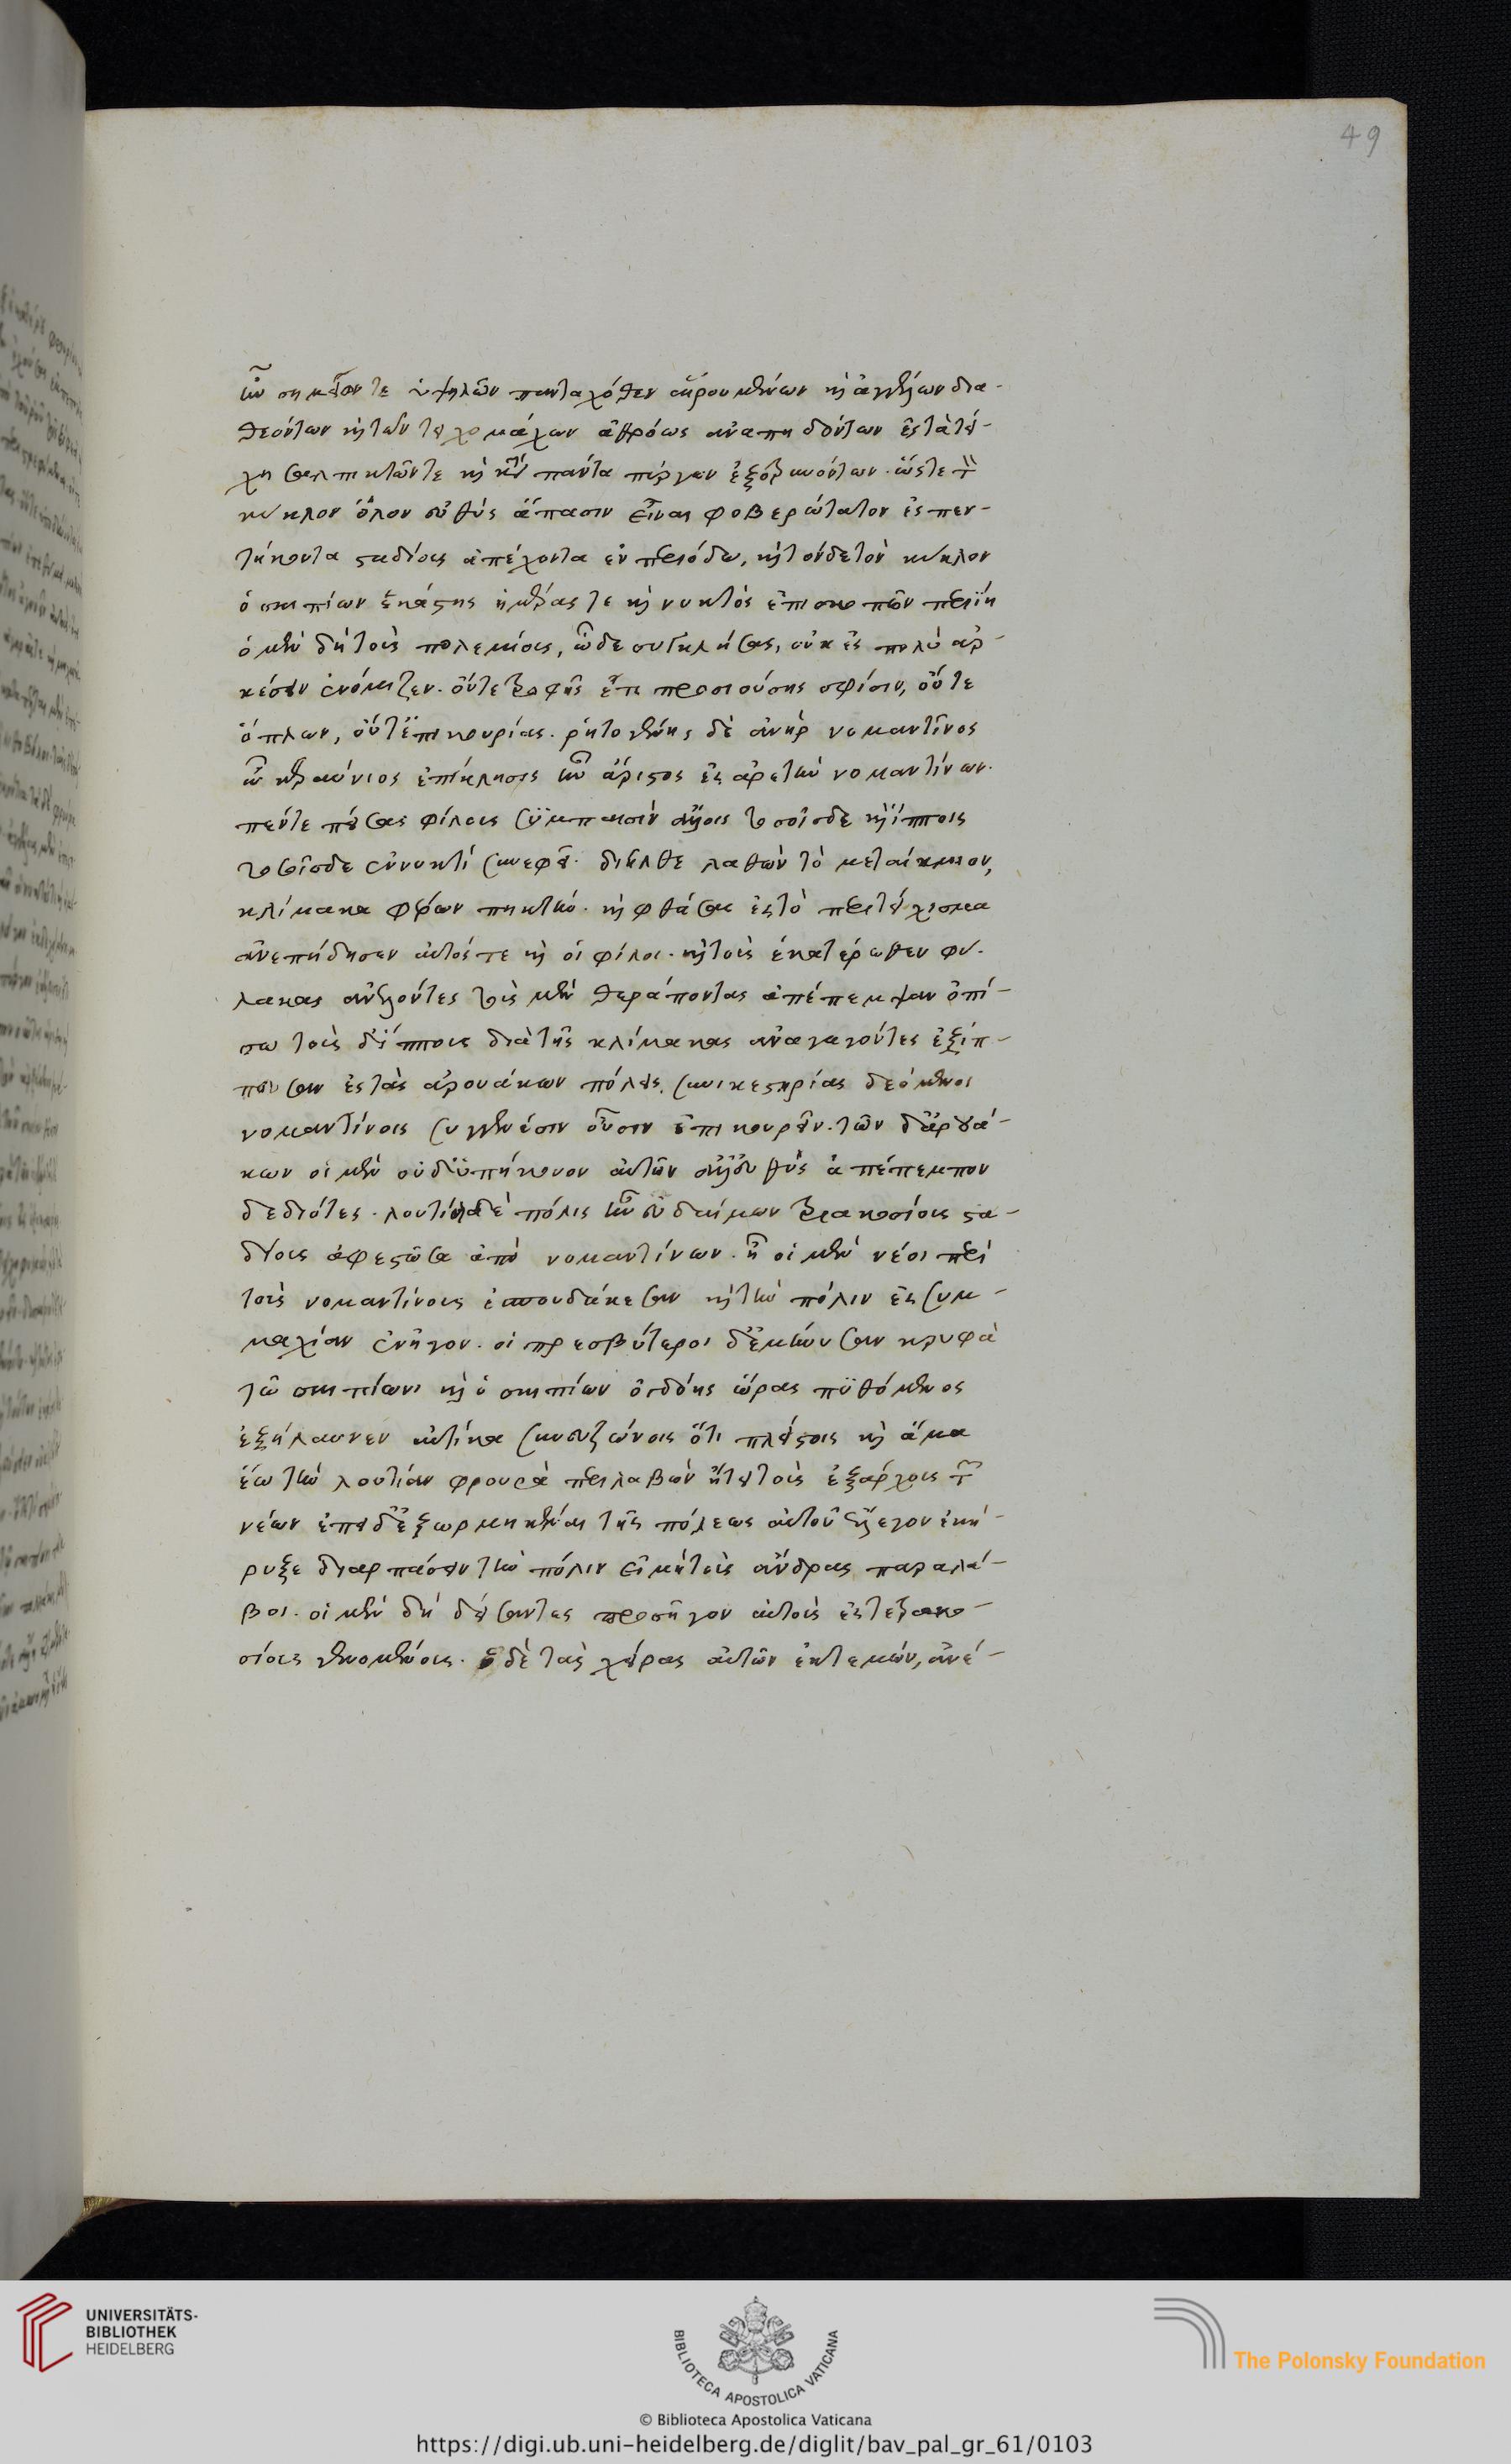 49
ἦν σημείων τε ὑψηλῶν πανταχόθεν αἰρουμένων καὶ ἀγγέλων δια-
θεόντων καὶ τῶν τειχομάχων ἀθρόως ἀναπηδόντων ἐς τὰ τεί-
χη σαλπικτῶν τε καὶ κατὰ πάντα πύργον ἐξοτρυνόντων. ὥστε τὸν
κύκλον ὅλον εὐθὺς ἅπασιν εἶναι φοβερώτατον ἐς πεν-
τήκοντα σταδίους ἀπέχοντα ἐν περιόδω, καὶ τόνδε τὸν κύκλον
ὁ σκιπίων ἑκάστης ἡμέρας τε καὶ νυκτὸς ἐπισκοπῶν περιῄει
ὁ μὲν δὴ τοὺς πολεμίους, ὧδε συγκλήσας, οὐκ ἐς πολὺ ἀρ-
κέσειν ἐνόμιζεν. οὔτε τροφῆς ἔτι προσιούσης σφίσιν, οὔτε
ὅπλων, οὔτ' ἐπικουρίας. ῥητογένης δὲ ἀνὴρ νομαντῖνος
ὧ κεραύνιος ἐπίκλησις ἦν ἄριστος ἐς ἀρετὴν νομαντίνων.
πέντε πείσας φίλους σὺν παισὶν ἄλλοις τοσοῖσδε καὶ ἵπποις
τοσοῖσδε ἐν νυκτὶ συνεφεῖ. διῆλθε λαθὼν τὸ μεταίχμιον,
κλίμακα φέρων πηκτήν. καὶ φθάσας ἐς τὸ περιτείχισμα
ἀνεπήδησεν αὐτός τε καὶ οἱ φίλοι. καὶ τοὺς ἑκατέρωθεν φύ-
λακας ἀνελόντες τοὺς μὲν θεράποντας ἀπέπεμψαν ὀπί-
σω τοὺς δ' ἵππους διὰ τῆς κλίμακας ἀναγαγόντες ἐξίπ-
πευσαν ἐς τὰς ἀρουάκων πόλεις, σὺν ἱκετηρίας δεόμενοι
νομαντίνοις συγγενέσιν οὖσιν ἐπικουρεῖν. τῶν δ' ἀρουά-
κων οἱ μὲν οὐδ' ὑπήκουον αὐτῶν ἀλλ' εὐθὺς ἀπέπεμπον
δεδιότες. λουτία δὲ πόλις ἦν εὐδαίμων τριακοσίους στα-
δίους ἀφεστῶσα ἀπὸ νομαντίνων. ἧ οἱ μὲν νέοι περὶ
τοὺς νομαντίνους ἐσπουδάκεσαν καὶ τὴν πόλιν ἐς συμ-
μαχίαν ἐνῆγον. οἱ πρεσβύτεροι δ' ἐμήνυσαν κρυφὰ
τῶ σκιπίωνι καὶ ὁ σκιπίων ὀγδόης ὥρας πυθόμενος
ἐξήλαυνεν αὐτίκα σὺν εὐζώνοις ὅτι πλείστοις καὶ ἅμα
ἕω τὴν λουτίαν φρουρὰ περιλαβὼν ᾔτει τοὺς ἐξάρχους τῶν
νέων ἐπεὶ δ' ἐξωρμηκέναι τῆς πόλεως αὐτοῦ ἔλεγον ἐκή-
ρυξε διαρπάσειν τὴν πόλιν εἰ μὴ τοὺς ἄνδρας παραλά-
βοι. οἱ μὲν δὴ δείσαντες προσῆγον αὐτοὺς ἐς τετρακο-
σίους γενομένους. ὁ δὲ τὰς χεῖρας αὐτῶν ἐκτεμών, ἀνέ-
UNIVERSITÄTS-
BIBLIOTHEK
HEIDELBERG
BIBLIOTECA APOSTOLICA VATICANA
The Polonsky Foundation
© Biblioteca Apostolica Vaticana
https://digi.ub.uni-heidelberg.de/diglit/bav_pal_gr_61/0103